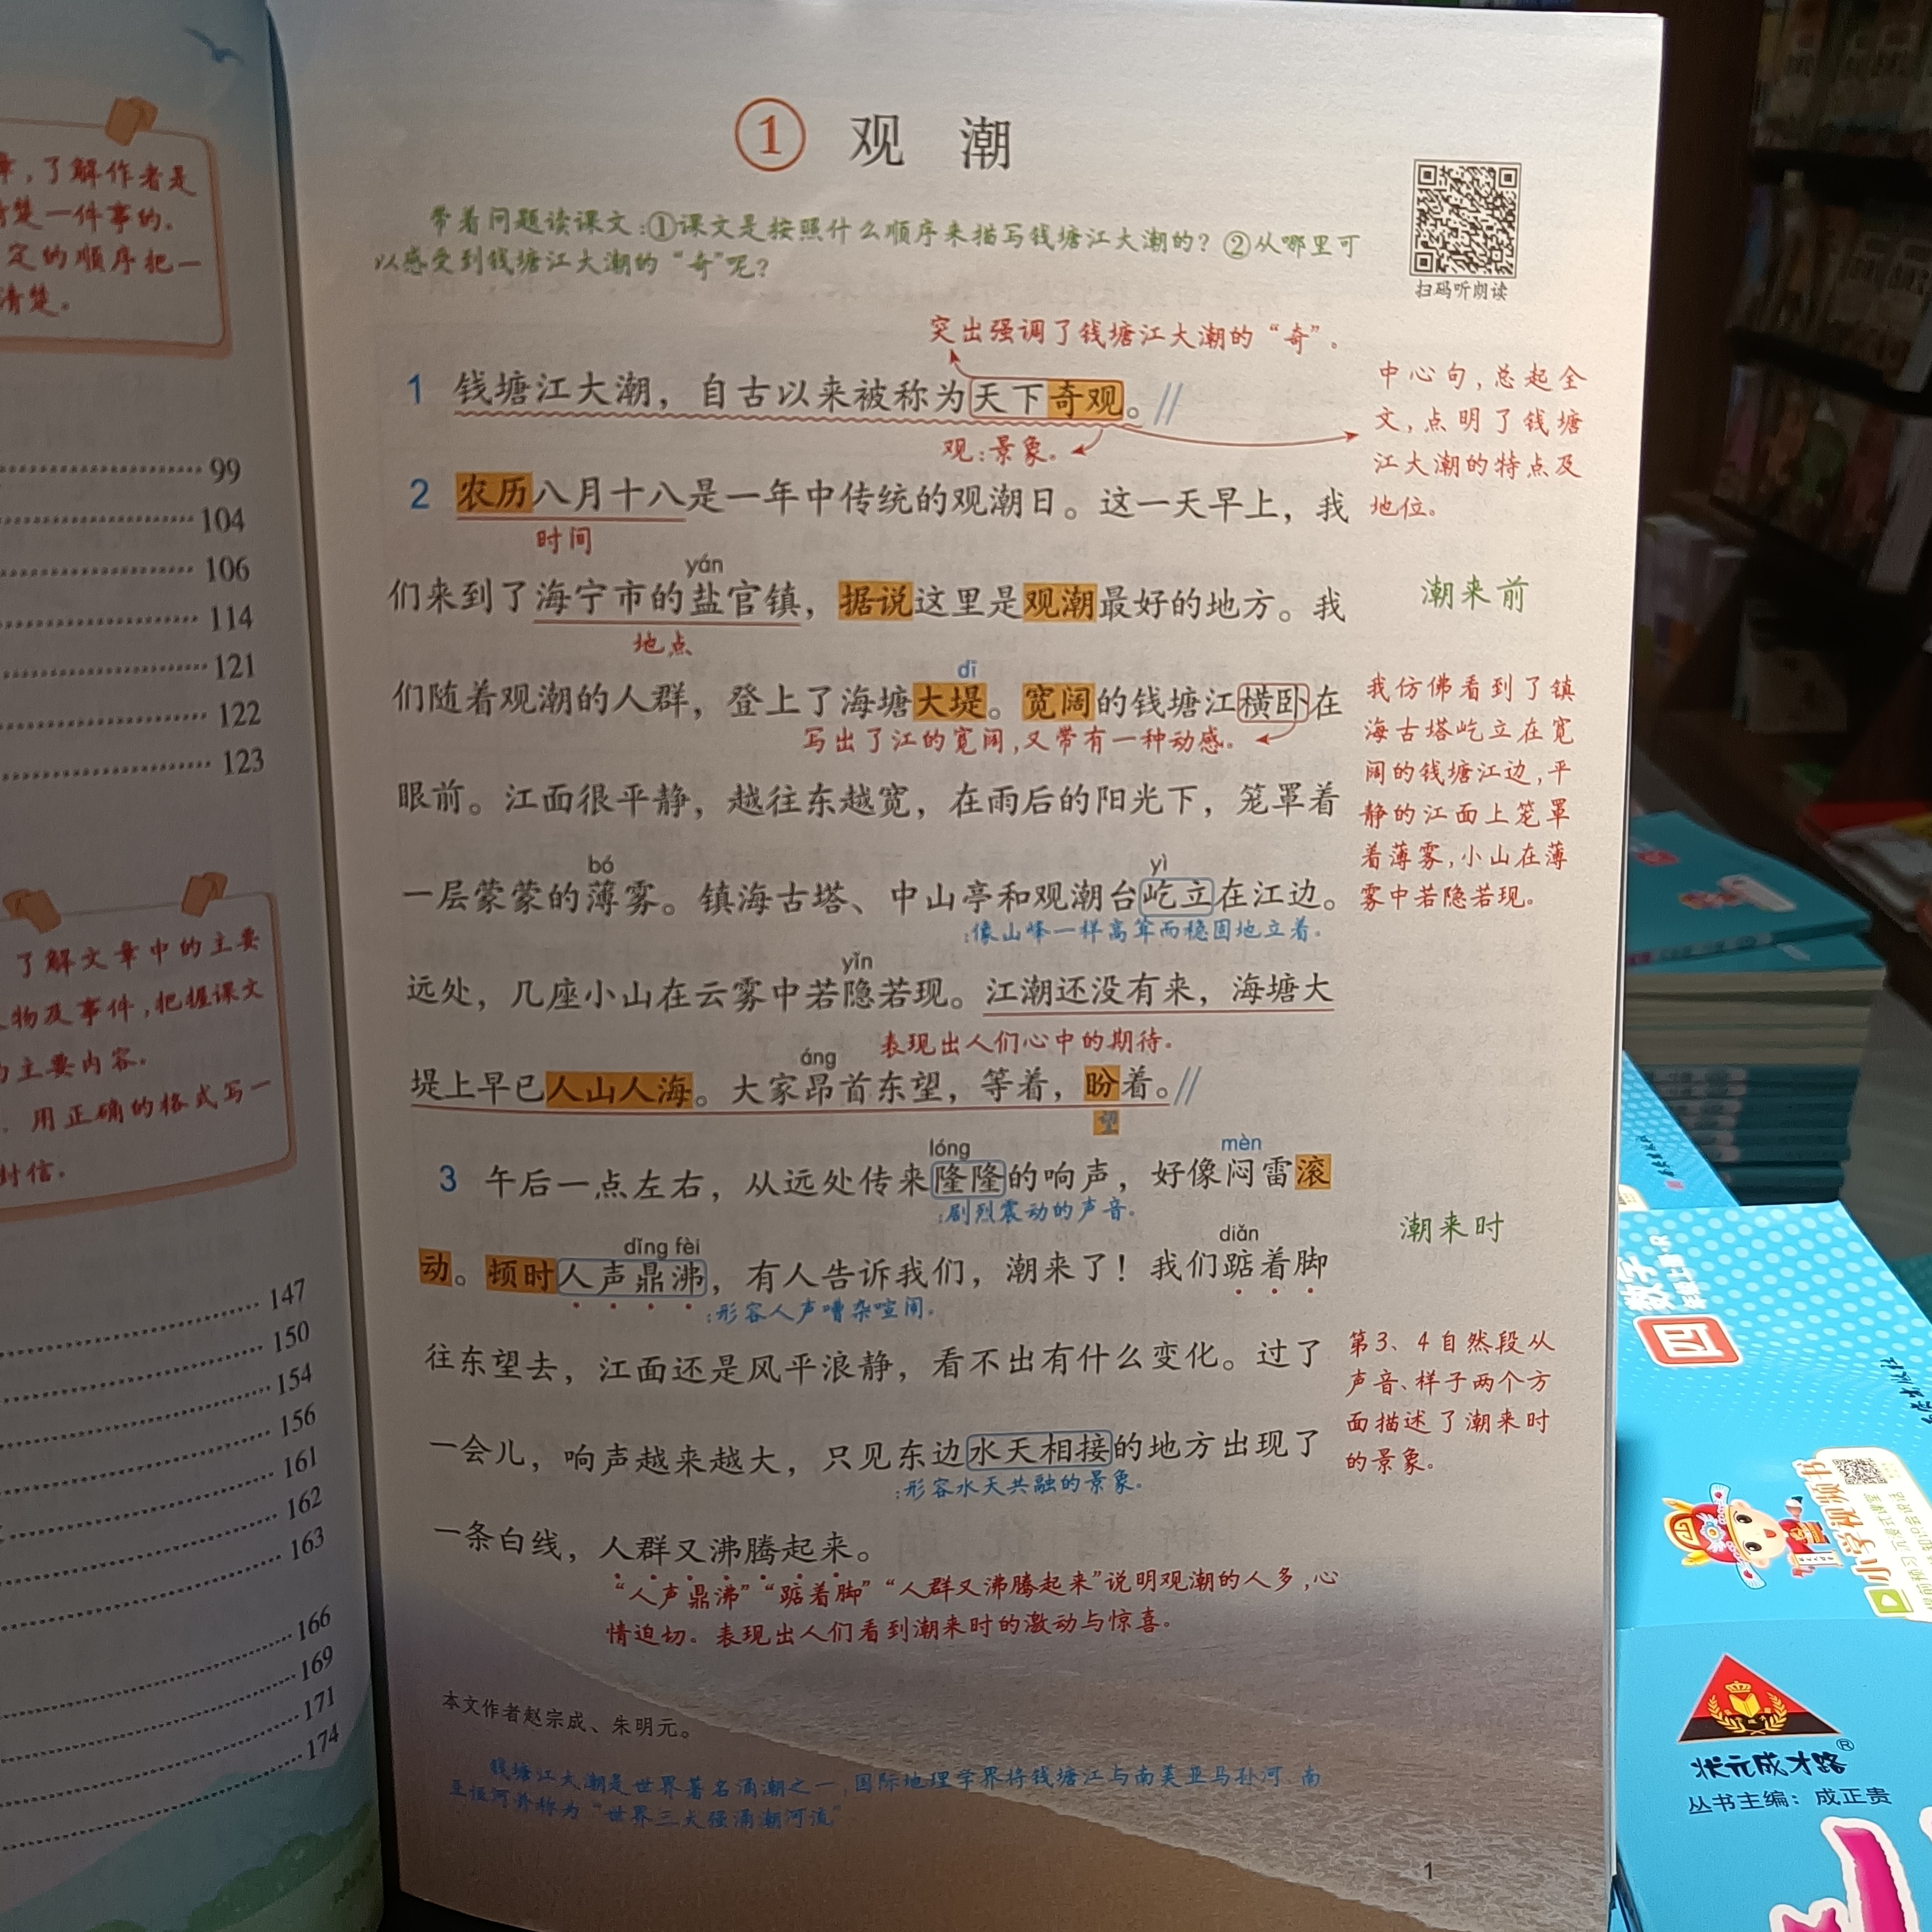 章,了解作者是
清楚一件事的。
定的顺序把一
清楚。
99
104
106
114
121
122
123
了解文章中的主要
人物及事件,把握课文
的主要内容。
用正确的格式写一
封信。
147
150
154
156
161
162
163
166
169
171
174
① 观 潮
带着问题读课文:①课文是按照什么顺序来描写钱塘江大潮的?②从哪里可
以感受到钱塘江大潮的“奇”呢?
扫码听朗读
突出强调了钱塘江大潮的“奇”。
1 钱塘江大潮,自古以来被称为天下奇观。//
观:景象。
中心句,总起全
文,点明了钱塘
江大潮的特点及
地位。
2 农历八月十八是一年中传统的观潮日。这一天早上,我
时间
yán
们来到了海宁市的盐官镇,据说这里是观潮最好的地方。我
地点
潮来前
dī
们随着观潮的人群,登上了海塘大堤。宽阔的钱塘江横卧在
写出了江的宽阔,又带有一种动感。
眼前。江面很平静,越往东越宽,在雨后的阳光下,笼罩着
bó yì
一层蒙蒙的薄雾。镇海古塔、中山亭和观潮台屹立在江边。
:像山峰一样高耸而稳固地立着。
我仿佛看到了镇
海古塔屹立在宽
阔的钱塘江边,平
静的江面上笼罩
着薄雾,小山在薄
雾中若隐若现。
yǐn
远处,几座小山在云雾中若隐若现。江潮还没有来,海塘大
表现出人们心中的期待。
áng
堤上早已人山人海。大家昂首东望,等着,盼着。//
望
lóng mèn
3 午后一点左右,从远处传来隆隆的响声,好像闷雷滚
:剧烈震动的声音。
潮来时
dǐng fèi diǎn
动。顿时人声鼎沸,有人告诉我们,潮来了!我们踮着脚
:形容人声嘈杂喧闹。
往东望去,江面还是风平浪静,看不出有什么变化。过了
一会儿,响声越来越大,只见东边水天相接的地方出现了
:形容水天共融的景象。
第3、4自然段从
声音、样子两个方
面描述了潮来时
的景象。
一条白线,人群又沸腾起来。
“人声鼎沸”“踮着脚”“人群又沸腾起来”说明观潮的人多,心
情迫切。表现出人们看到潮来时的激动与惊喜。
本文作者赵宗成、朱明元。
钱塘江大潮是世界著名涌潮之一,国际地理学界将钱塘江与南美亚马孙河、南
亚恒河并称为“世界三大强涌潮河流”
1
数学
四
小学视频书
状元成才路®
丛书主编:成正贵